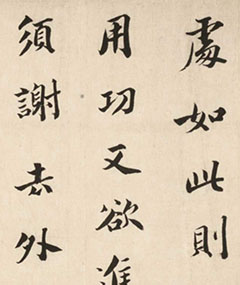 處如此則
用功又欲進
須謝去外